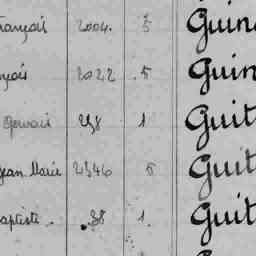 rançois 2004. 5 Guin
çois 2022 5 Guin
Gervais 298 1 Guit
Jean Marie 2346 5 Guit
aptiste . 88 1. Guit